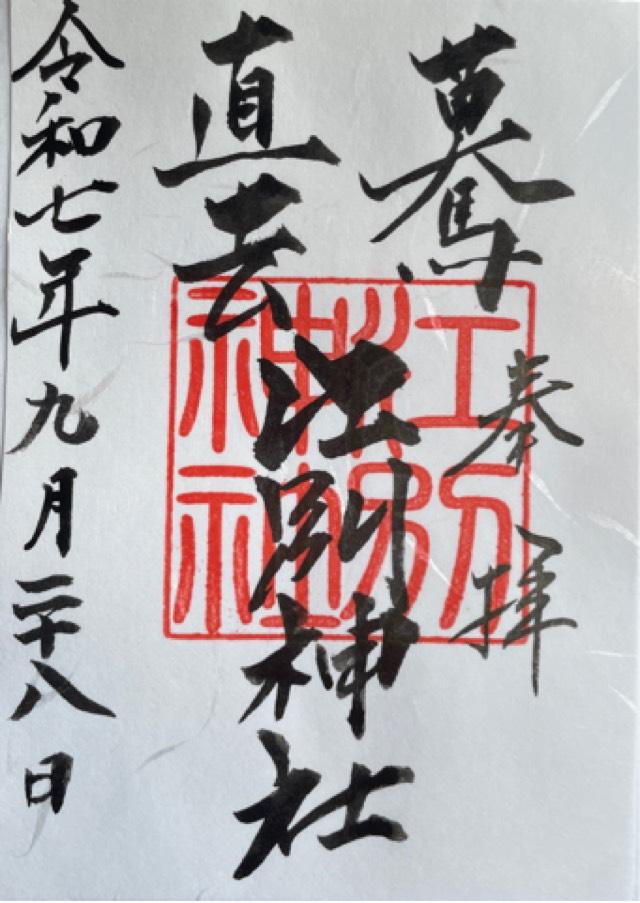 奉拝
驀
直去
江別神社
江別
神社
令和七年九月二十八日